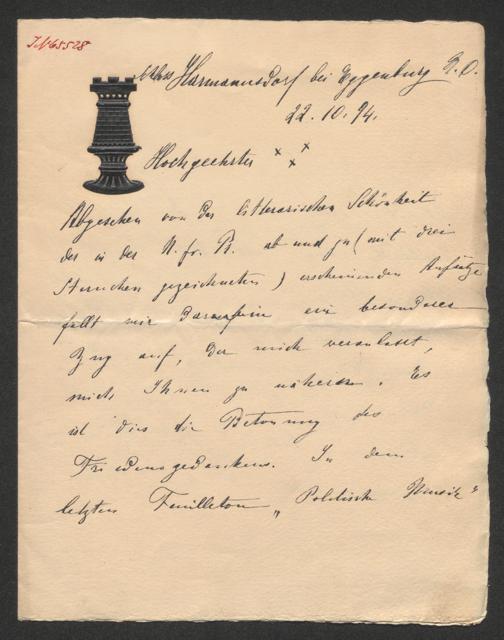 I.N 65528
Schloss Harmannsdorf bei Eggenburg N. O.
22. 10. 94.
Hochgeehrter x x x
Abgesehen von der litterarischen Schönheit
der in der N. fr. Pr. ab und zu (mit drei
Sternchen gezeichneten) erscheinenden Aufsätze
fällt mir darin ein besonderer
Zug auf, der mich veranlasst,
mich Ihnen zu nähern. Es
ist dies die Betonung des
Friedensgedankens. In dem
letzten Feuilleton „Politische Musik"